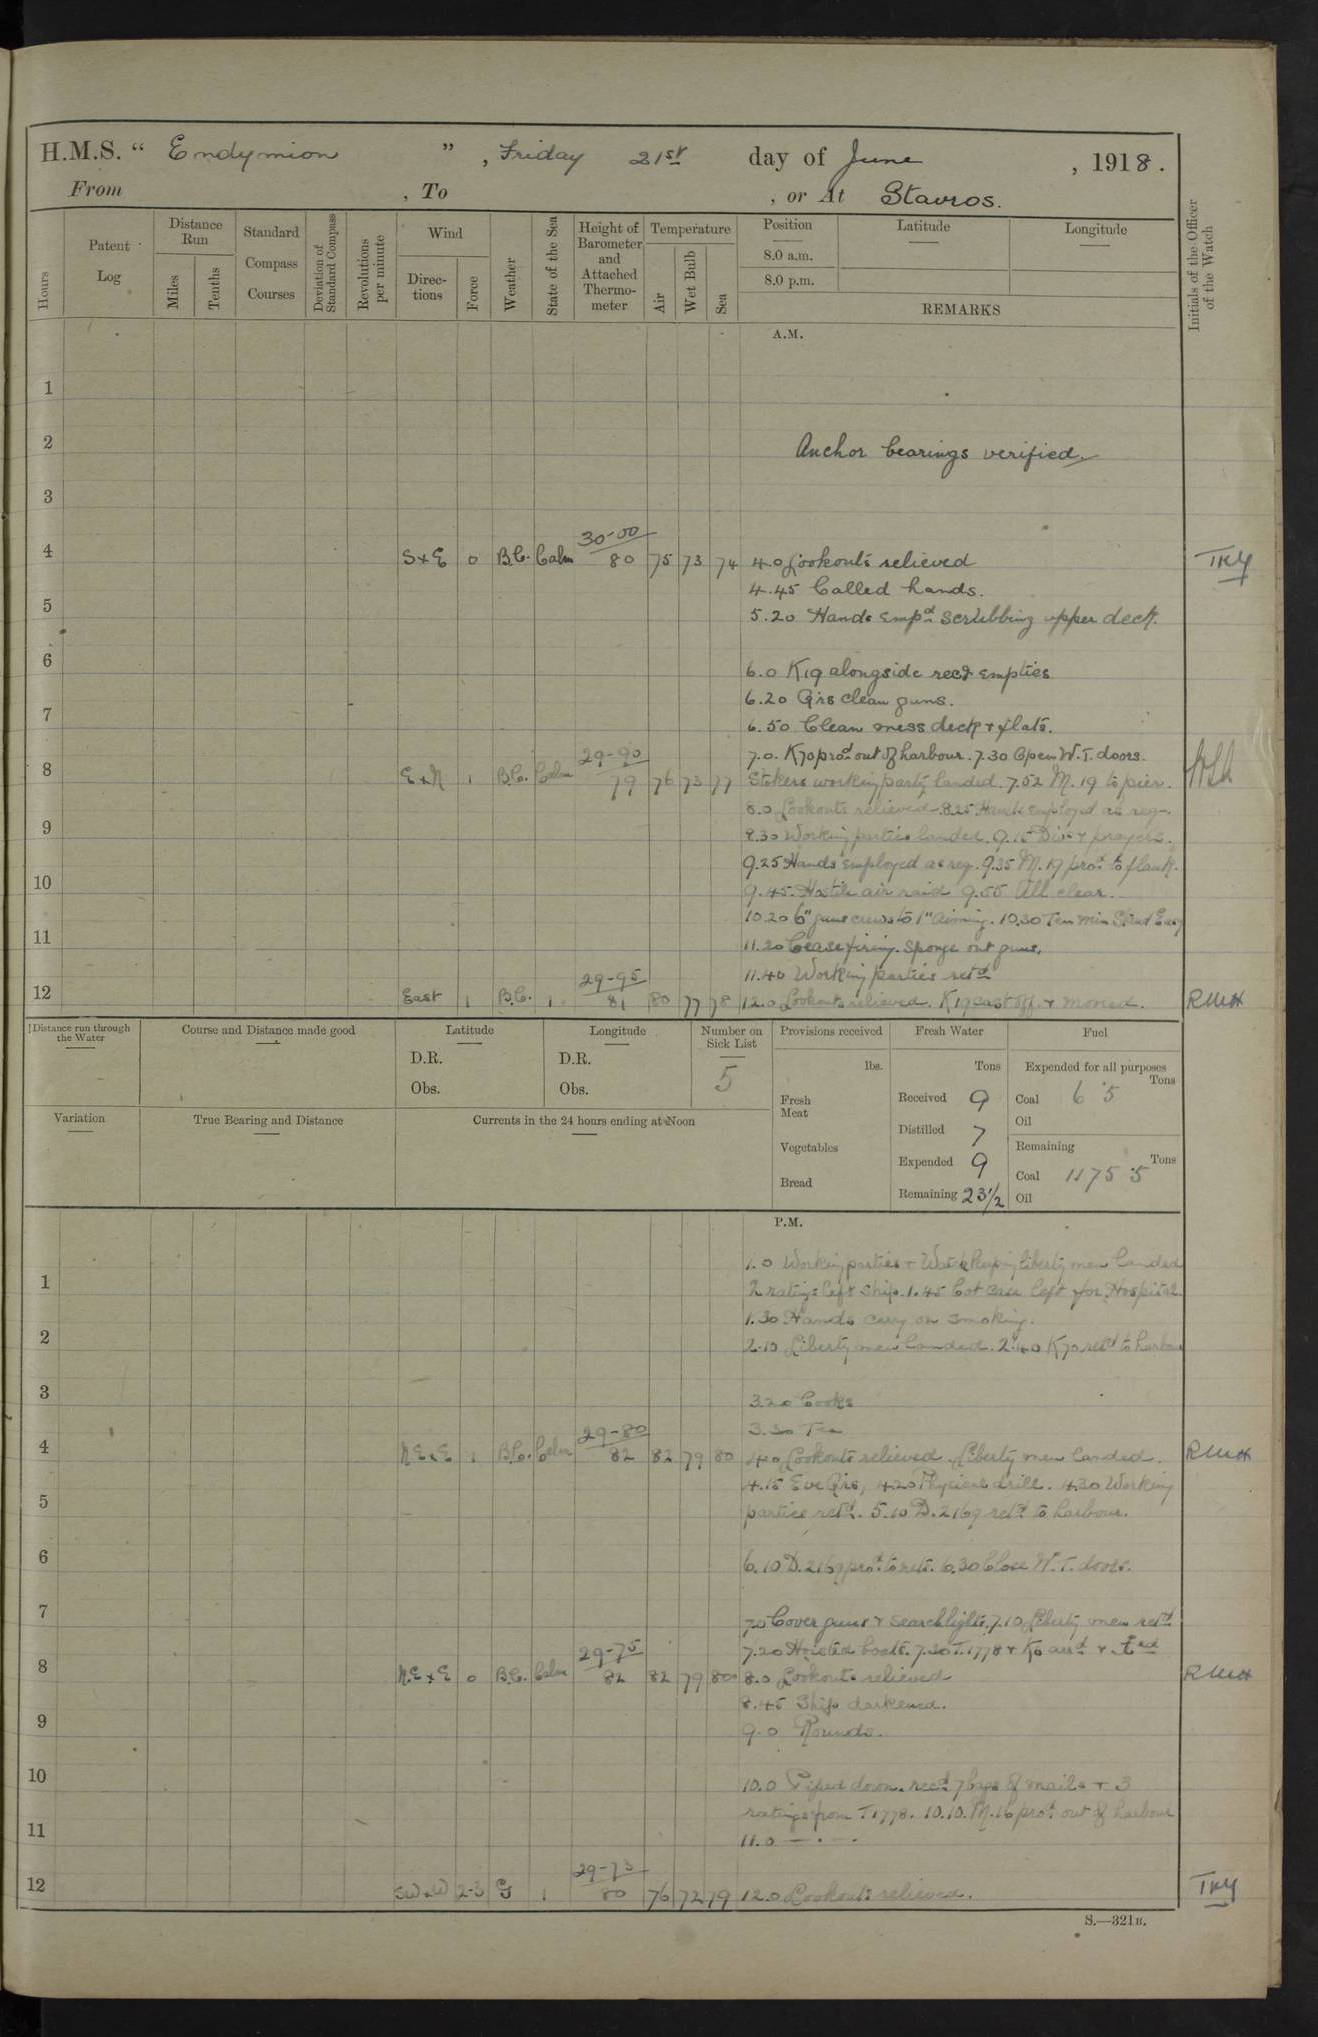 H.M.S. “ Endymion ” , Friday 21st day of June , 1918.
From , To , or At Stavros.
Hours
Patent Log
Distance Run
Miles
Tenths
Standard Compass Courses
Deviation of Standard Compass
Revolutions per minute
Wind
Directions
Force
Weather
State of the Sea
Height of Barometer and Attached Thermometer
Temperature
Air
Wet Bulb
Sea
Position
8.0 a.m.
8.0 p.m.
Latitude
Longitude
REMARKS
Initials of the Officer of the Watch
A.M.
1
2 Anchor bearings verified
3
30-00
4 S x E 0 B.C. Calm 80 75 73 74 4.0 Lookouts relieved TKY
4.45 Called hands.
5 5.20 Hands Emp.d scrubbing upper deck.
6 6.0 K19 alongside rec.d empties
6.20 Q'rs clean guns.
7 6.50 Clean mess deck & flats.
29-90 7.0. K70 pro.d out of harbour. 7.30 Open W.T. doors.
8 E x N 1 B.C. Calm 79 76 73 77 Stokers working party landed. 7.52 M.19 to pier.
8.0 Lookouts relieved. 8.25 Hands employed as req.
9 8.30 Working parties landed. 9.15 Divs & prayers.
9.25 Hands employed as req. 9.35 M.19 pro.d to flank.
10 9.45 Hostile air raid 9.55 All clear.
10.20 6" guns crews to 1" aiming. 10.30 Ten min Stand Easy
11 11.20 Cease firing. Sponge out guns.
29-95 11.40 Working parties ret.d
12 East 1 B.C. 1 81 80 77 78 12.0 Lookouts relieved. K19 cast off & moored. RWH
Distance run through the Water
Course and Distance made good
Latitude
D.R.
Obs.
Longitude
D.R.
Obs.
Number on Sick List
5
Provisions received
lbs.
Fresh Meat
Vegetables
Bread
Fresh Water
Tons
Received 9
Distilled 7
Expended 9
Remaining 23½
Fuel
Expended for all purposes
Tons
Coal 6·5
Oil
Remaining
Tons
Coal 1175·5
Oil
Variation
True Bearing and Distance
Currents in the 24 hours ending at Noon
P.M.
1.0 Working parties & Watchkeeping liberty men landed
1 2 ratings left ship. 1.45 Cot case left for Hospital
1.30 Hands carry on smoking.
2 2.10 Liberty men landed. 2.40 K70 ret.d to harbour
3 3.20 Cooks
29-80 3.30 Tea
4 N.E x E 1 B.C. Calm 82 82 79 80 4.0 Lookouts relieved. Liberty men landed. RWH
4.15 Eve Q'rs, 4.20 Physical drill. 4.30 Working
5 parties ret.d. 5.10 D.2169 ret.d to harbour.
6 6.10 D.2169 pro.d to nets. 6.30 Close W.T. doors.
7 7.0 Cover guns & searchlights. 7.10 Liberty men ret.d
29-75 7.20 Hoisted boats. 7.30 T.1778 & K6 arr.d &
8 N.E x E 0 B.C. Calm 82 82 79 80 8.0 Lookouts relieved RWH
8.45 Ship darkened.
9 9.0 Rounds.
10 10.0 Piped down. rec.d 7 bags of mails & 3
ratings from T1778. 10.10. M.16 pro.d out of harbour
11 11.0 — · — ·
29-73
12 SW x W 2-3 G 1 80 76 72 79 12.0 Lookouts relieved. TKY
S.—321B.